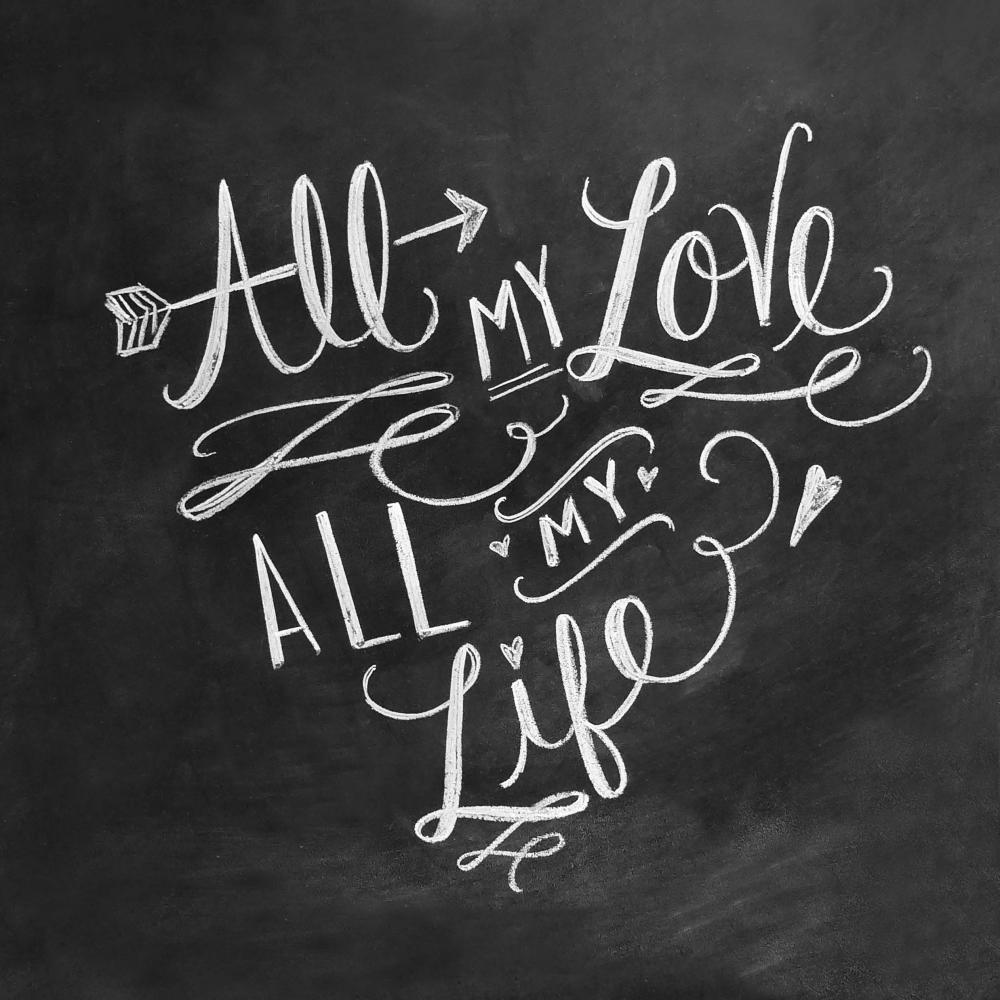 All MY Love
ALL MY
Life